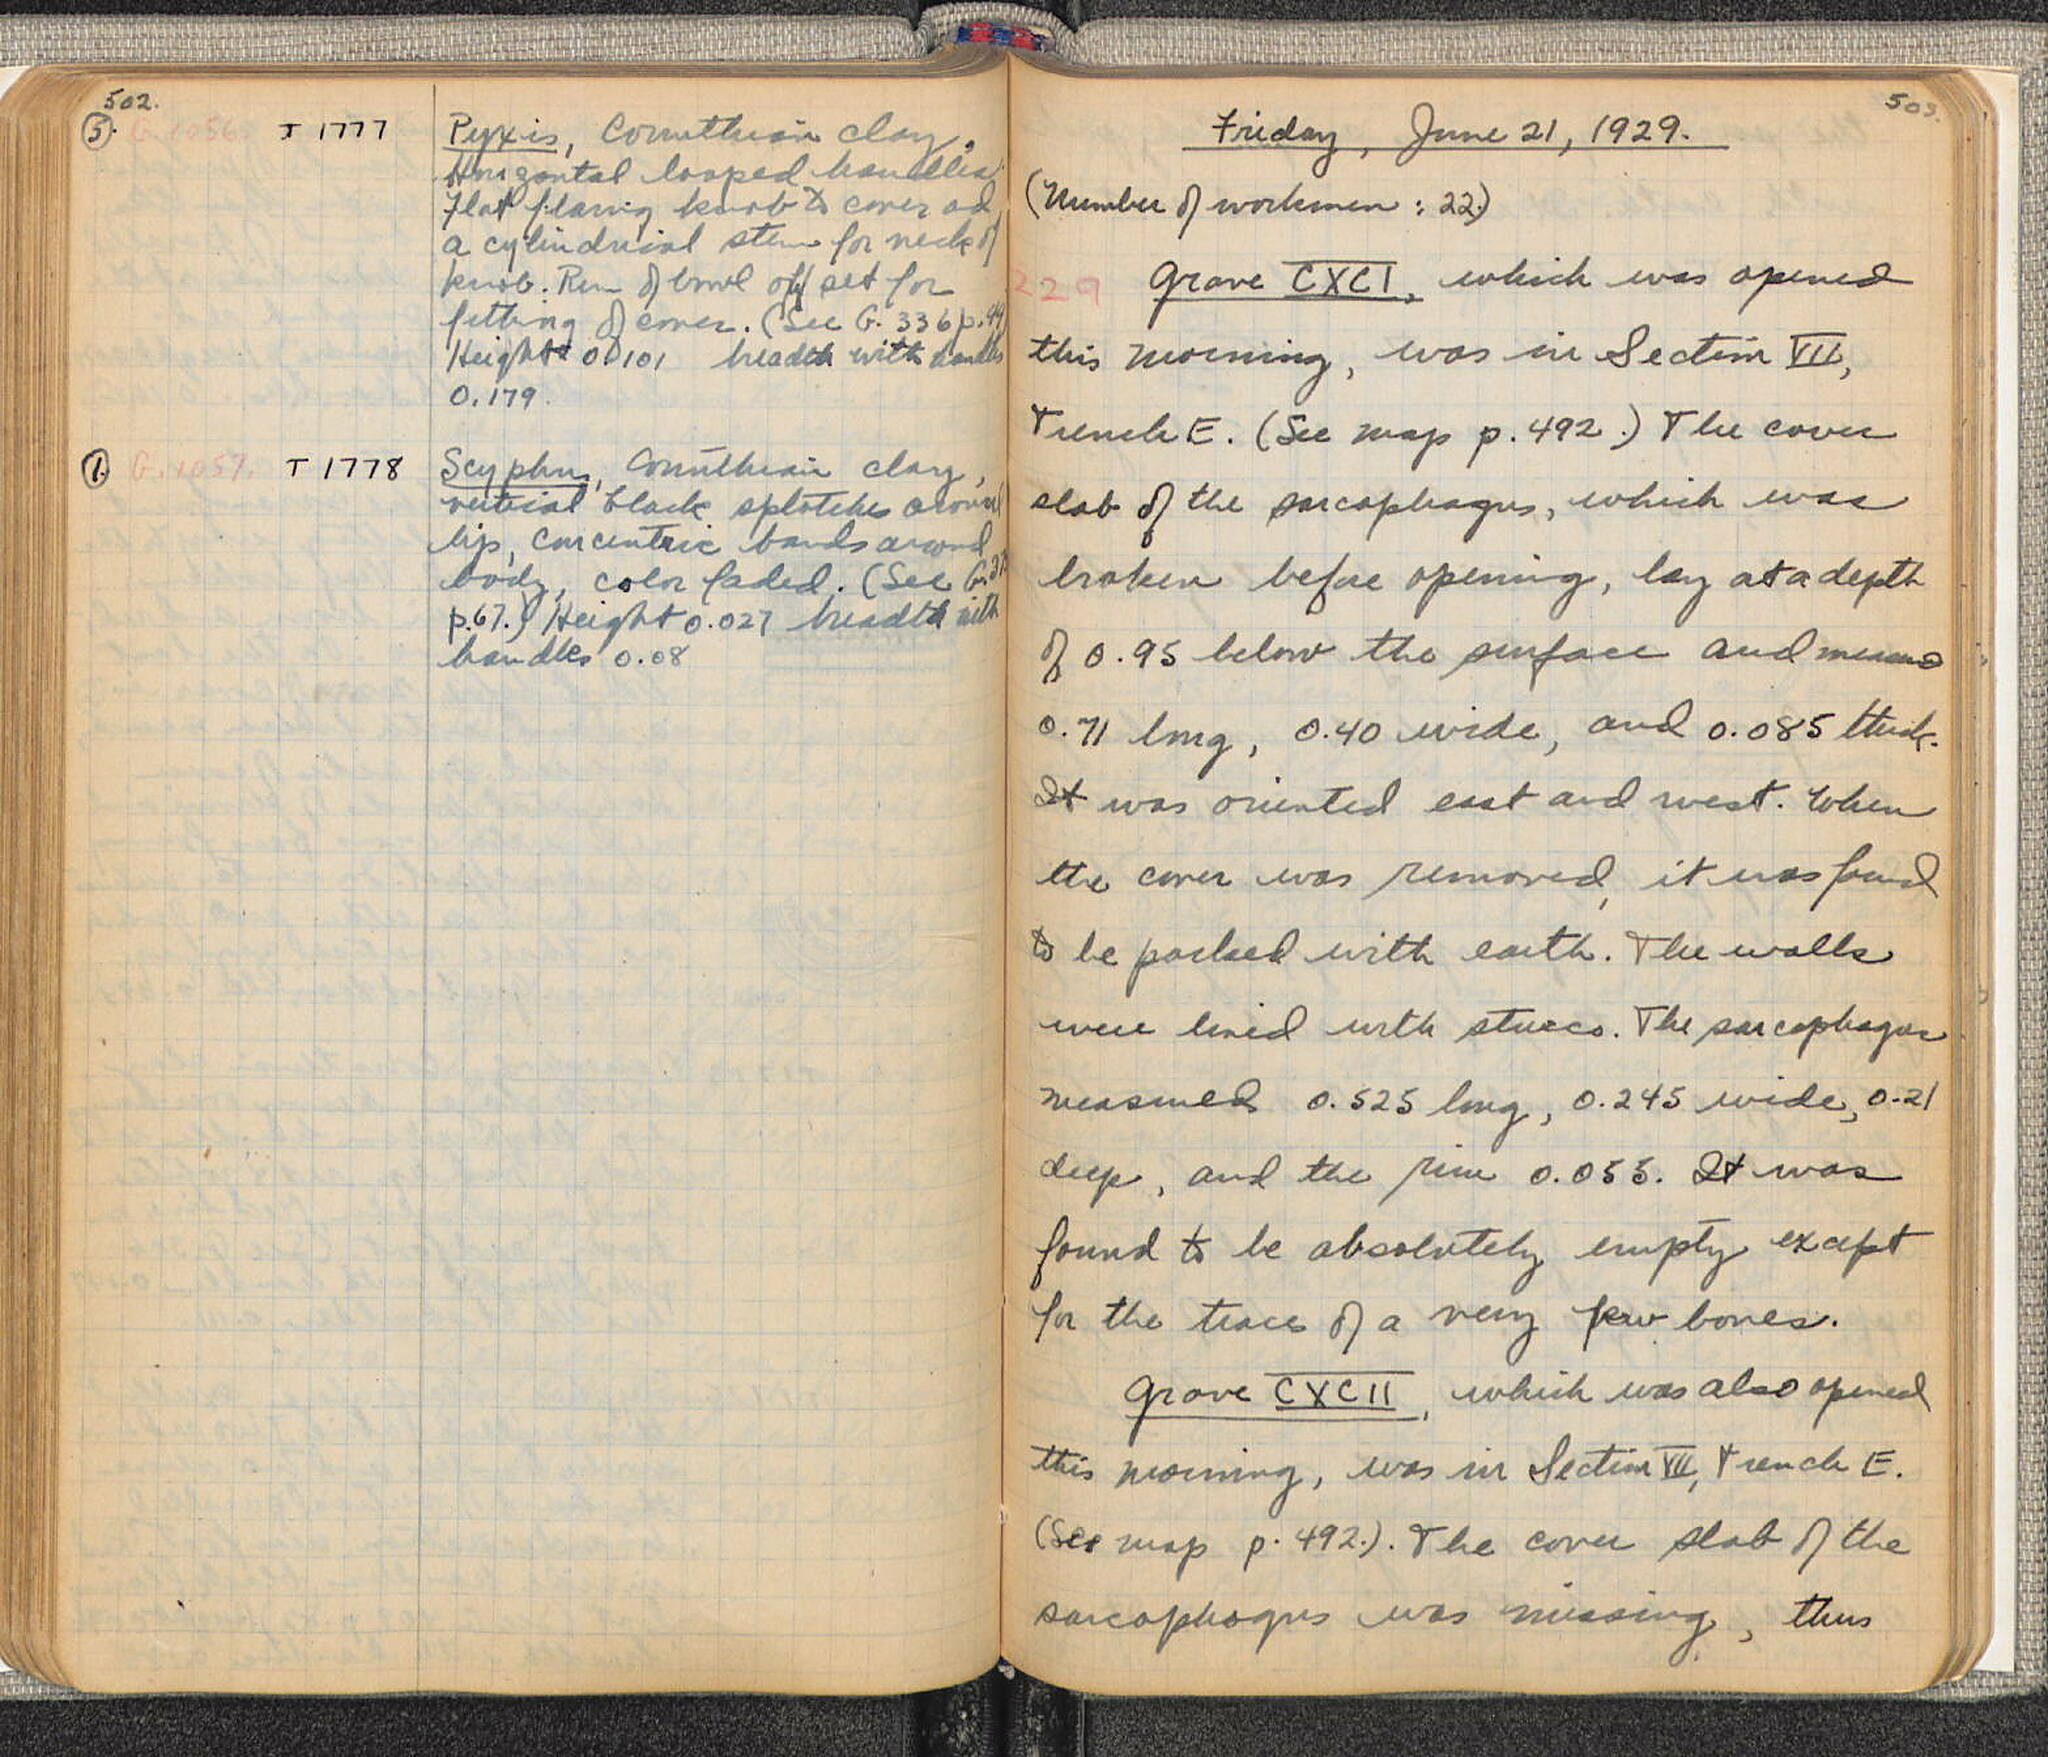 502.
5. G. 1056. T 1777 Pyxis, Corinthian clay,
Horizontal looped handles.
Flat flaring knob to cover and
a cylindrical stem for neck of
knob. Rim of bowl off set for
fitting of cover. (See G. 336 p. 94
Height 0.101 breadth with handles
0.179.
1. G. 1057. T 1778 Scyphus, Corinthian clay,
vertical black splotches around
lip, concentric bands around
body, color faded. (See G.
p.67.) Height 0.027 breadth with
handles 0.08
503.
Friday, June 21, 1929.
(Number of workmen : 22.)
229 Grave CXCI, which was opened
this morning, was in Section VII,
Trench E. (See map p. 492.) The cover
slab of the sarcophagus, which was
broken before opening, lay at a depth
of 0.95 below the surface and measured
0.71 long, 0.40 wide, and 0.085 thick.
It was oriented east and west. When
the cover was removed, it was found
to be packed with earth. The walls
were lined with stucco. The sarcophagus
measured 0.525 long, 0.245 wide, 0.21
deep, and the rim 0.055. It was
found to be absolutely empty except
for the traces of a very few bones.
Grave CXCII, which was also opened
this morning, was in Section VII, Trench E.
(See map p. 492.). The cover slab of the
sarcophagus was missing, thus